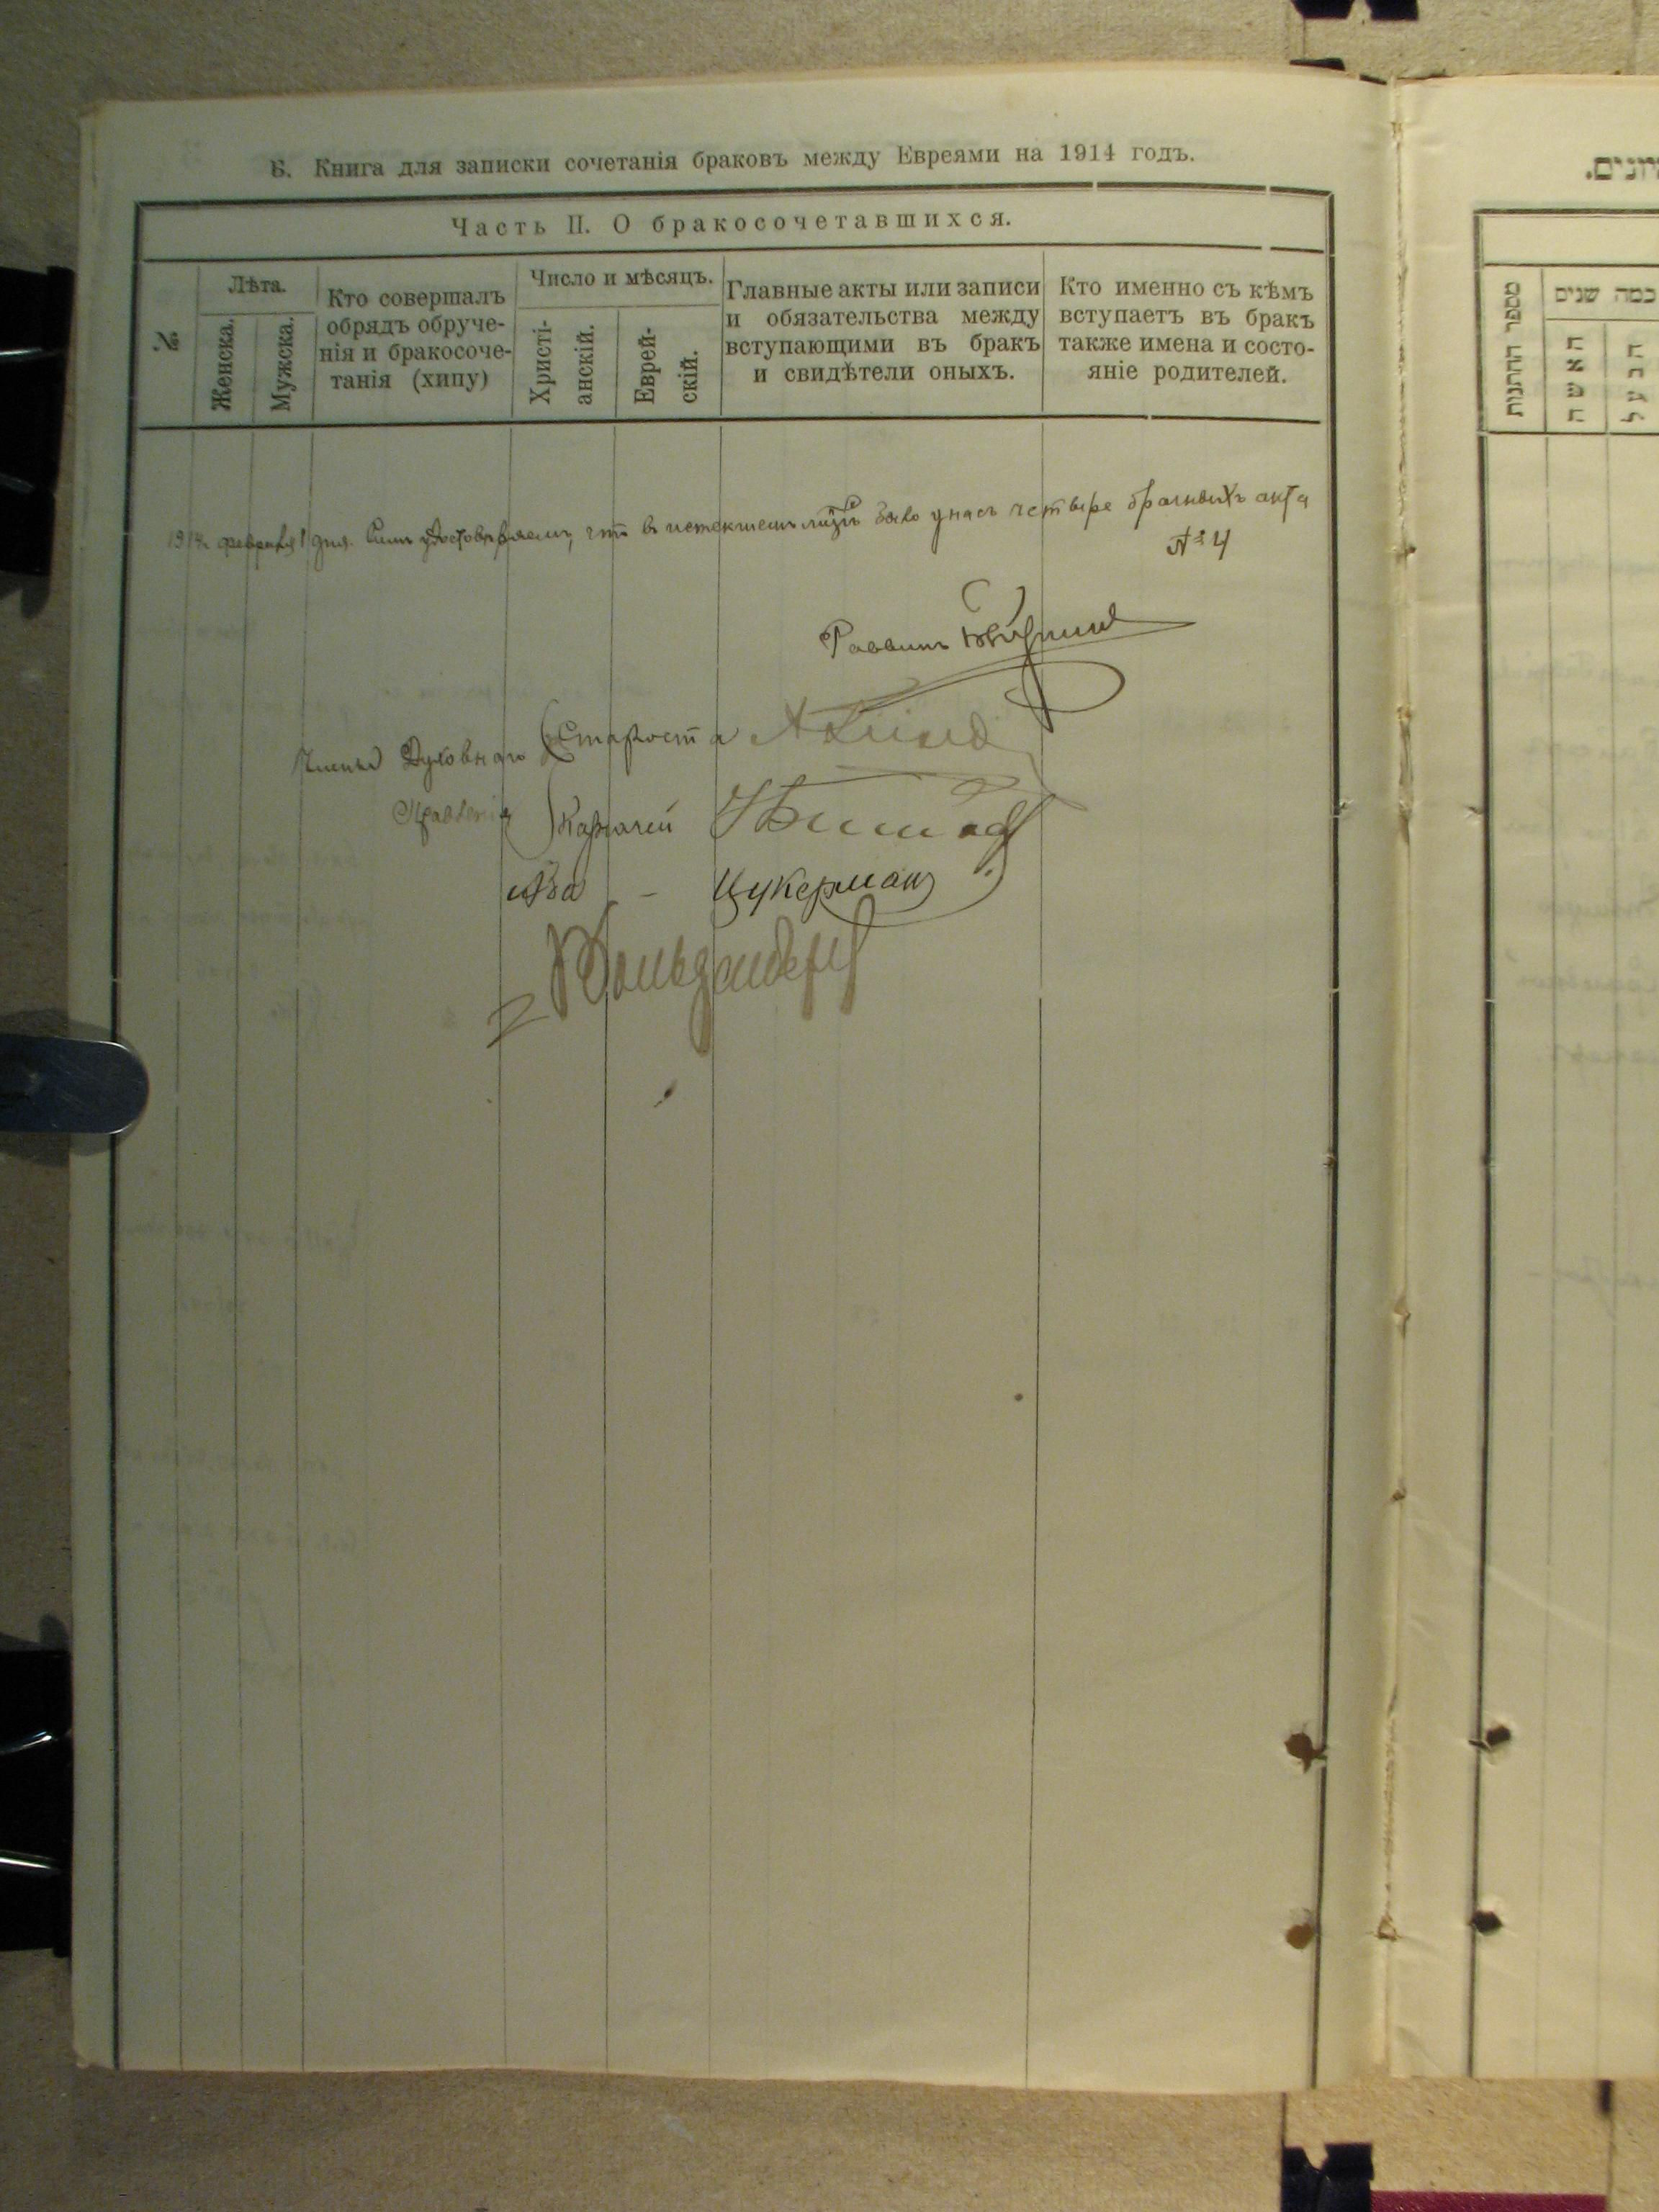 Б. Книга для записки сочетанія браковъ между Евреями на 1914 годъ.
Часть II. О бракосочетавшихся.
№
Лѣта.
Женска.
Мужска.
Кто совершалъ
обрядъ обруче-
нія и бракосоче-
танія (хипу)
Число и мѣсяцъ.
Христі-
анскій.
Еврей-
скій.
Главные акты или записи
и обязательства между
вступающими въ бракъ
и свидѣтели оныхъ.
Кто именно съ кѣмъ
вступаетъ въ бракъ
также имена и состо-
яніе родителей.
1914 февраля 1 дня. Симъ удостовѣряемъ, что в истекшемъ было у насъ четыре брачныхъ акта
№ 4
Раввинъ
Члены Духовнаго Староста
Правленія Казначей
Цукерман
מספר החתנות
כמה שנים
האשה
הבעל